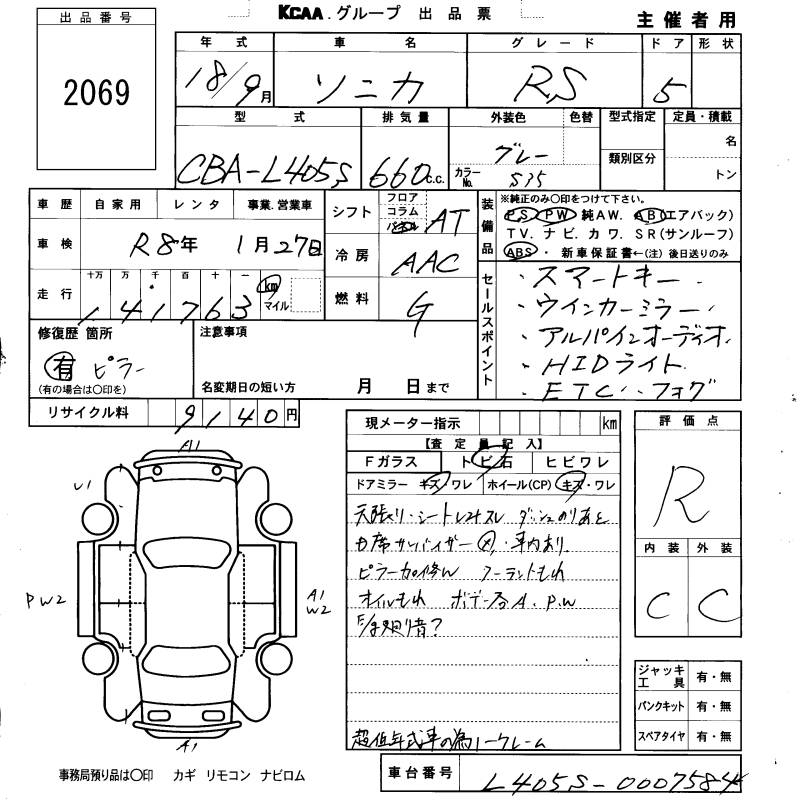 KCAA.グループ 出品票
主催者用
出品番号
2069
年式 車名 グレード ドア 形状
18/9月 ソニカ RS 5
型式 排気量 外装色 色替 型式指定 定員・積載
CBA-L405S 660c.c. グレー 名
カラーNo. S35 類別区分 トン
車歴 自家用 レンタ 事業.営業車
シフト フロア コラム AT
装備品 ※純正のみ○印をつけて下さい。
PS PW 純AW. AB(エアバック)
TV. ナビ. カワ. SR(サンルーフ)
ABS・新車保証書←(注)後日送りのみ
車検 R8年 1月27日
冷房 AAC
走行 十万 万 千 百 十 一
141763 km マイル
燃料 G
セールスポイント
・スマートキー
・ウインカーミラー
・アルパインオーディオ
・HIDライト
・ETC・フォグ
修復歴 箇所
有 ピラー
(有の場合は○印を)
注意事項
名変期日の短い方 月 日まで
リサイクル料 9140円
現メーター指示 km
【査定員記入】
Fガラス トビ石 ヒビワレ
ドアミラー キズ/ワレ ホイール(CP) キズ・ワレ
天張り・シートレスレ ダッシュのりあと
ピラー
オイルもれ A. P.W
超低年式車の為ノークレーム
評価点
R
内装 外装
C C
A1
U1
PW2
A1
W2
A1
ジャッキ工具 有・無
パンクキット 有・無
スペアタイヤ 有・無
事務局預り品は○印 カギ リモコン ナビロム
車台番号 L405S-0007584